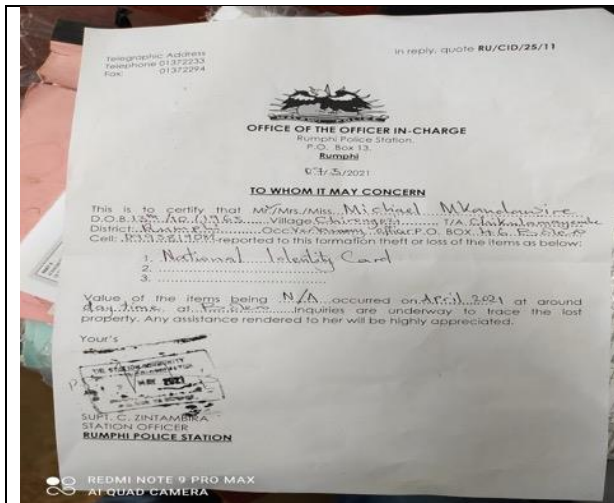 Telegraphic Address
Telephone 01372233
Fax: 01372294
In reply, quote RU/CID/25/11
OFFICE OF THE OFFICER IN-CHARGE
Rumphi Police Station.
P.O. Box 13.
Rumphi
07/5/2021
TO WHOM IT MAY CONCERN
This is to certify that Mr/Mrs./Miss Michael Mkandawire
D.O.B. 13th/10/1965 Village T/A
District: Rumphi Occ: Veterinary Officer P.O. BOX
Cell: reported to this formation theft or loss of the items as below:
1. National Identity Card
2.
3.
Value of the items being N/A occurred on April 2021 at around
day time at Inquiries are underway to trace the lost
property. Any assistance rendered to her will be highly appreciated.
Your's
MAY 2021
SUPT. C. ZINTAMBIRA
STATION OFFICER
RUMPHI POLICE STATION
REDMI NOTE 9 PRO MAX
AI QUAD CAMERA